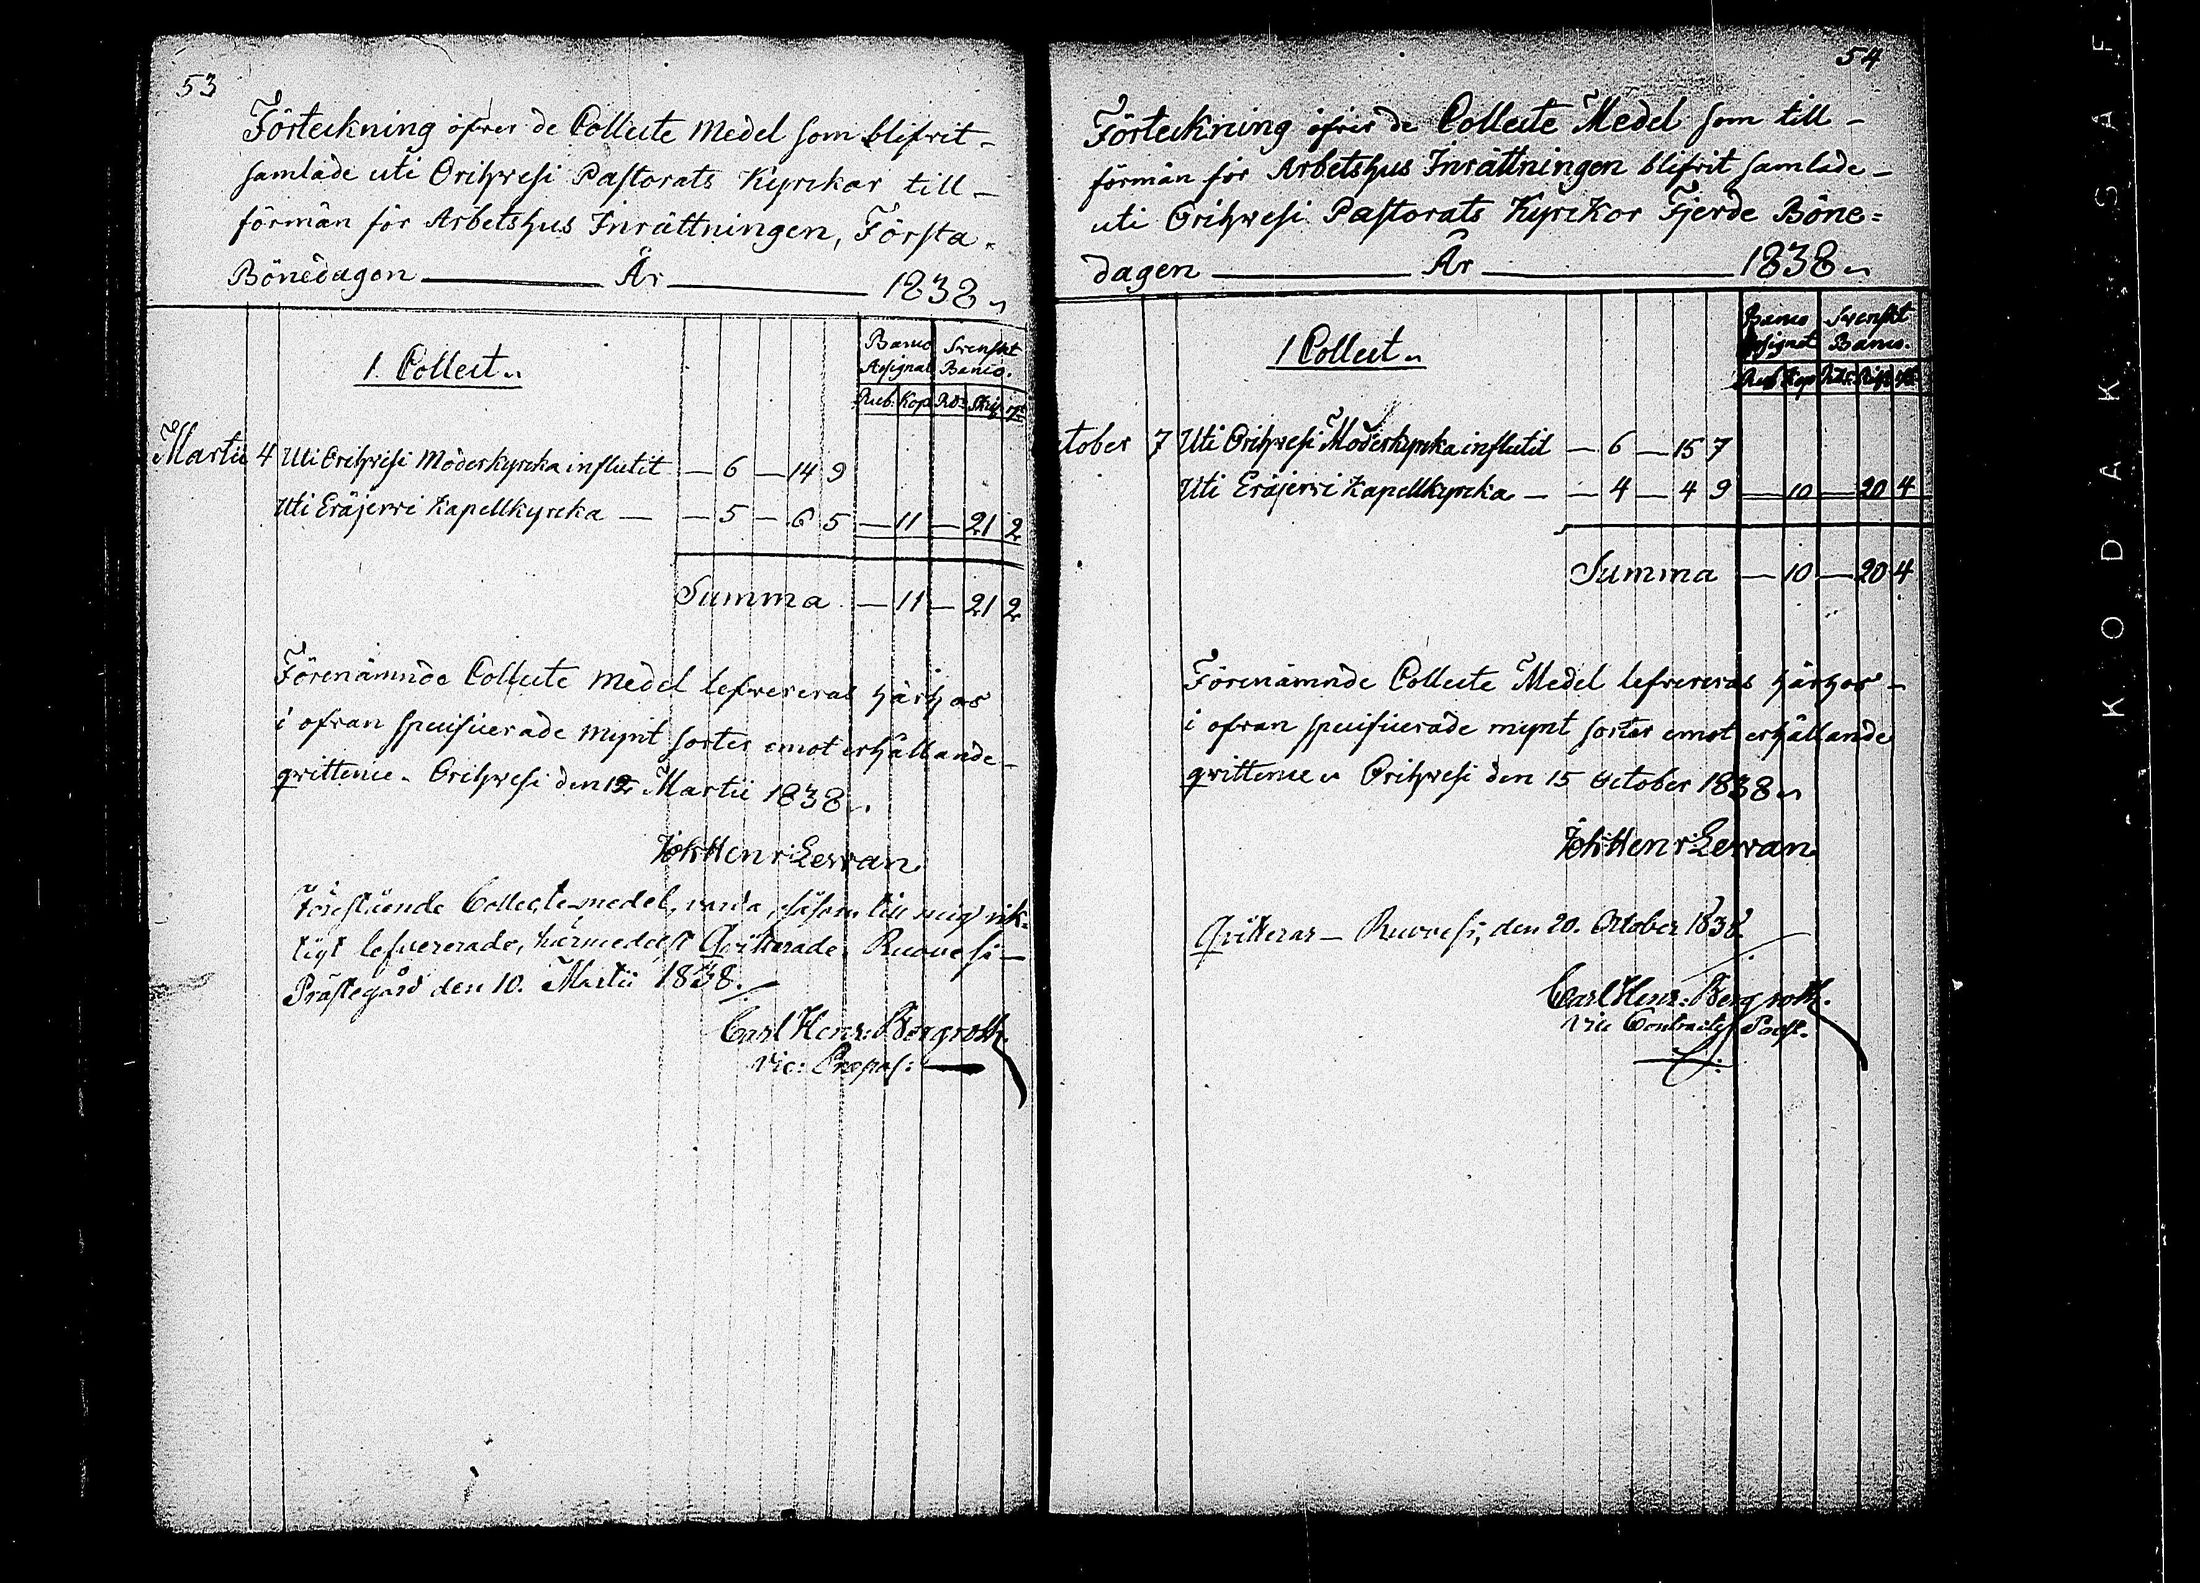 53
Förteckning öfver de Collecte Medel som blifvit -
samlade uti Orihvesi Pastorats Kyrckor till -
förmån för Arbetshus Inrättningen, Första -
Bönedagen — År — 1838
1 Collect
Banco Assignat. Svenskt Banco.
Rub. Kop. Rdr Skg. rst
Martii 4 Uti Orihvesi Moderkyrcka influtit — 6 — 14 9
Uti Eräjervi Kapellkyrcka — — 5 — 6 5 — 11 — 21 2
Summa — 11 — 21 2
Förenämnde Collecte Medel lefvereras härhos
i ofvan specificerade mynt sorter emot erhållande -
qvittence. Orihvesi den 12 Martii 1838
Joh Henr: Lewan
Förestående Collecte-medel, varda, såsom till mig rik-
tigt lefvererade, härmedelst Qvitterade. Ruovesi -
Prästegård den 10. Martii 1838.
Carl Henr: Bergroth.
Vic: Præpos:
54
Förteckning öfver de Collecte Medel som till -
förmån för Arbetshus Inrättningen blifvit samlade -
uti Orihvesi Pastorats Kyrckor Fjerde Böne=
dagen — År — 1838
1 Collect
Banco Assignat Svenskt Banco.
Rub Kop Rdr Skg rst
ctober 7 Uti Orihvesi Moderkyrcka influtit — 6 — 15 7
Uti Eräjervi Kapellkyrcka — — 4 — 4 9 — 10 — 20 4
Summa — 10 — 20 4
Förenämnde Collecte Medel lefvereras härhos -
i ofvan specificerade mynt sorter emot erhållande
qvittence Orihvesi den 15 October 1838
Joh Henr: Lewan
Qvitteras — Ruovesi, den 20. October 1838
Carl Henr: Bergroth.
Vice Contracts Prost.
KODAK SAF